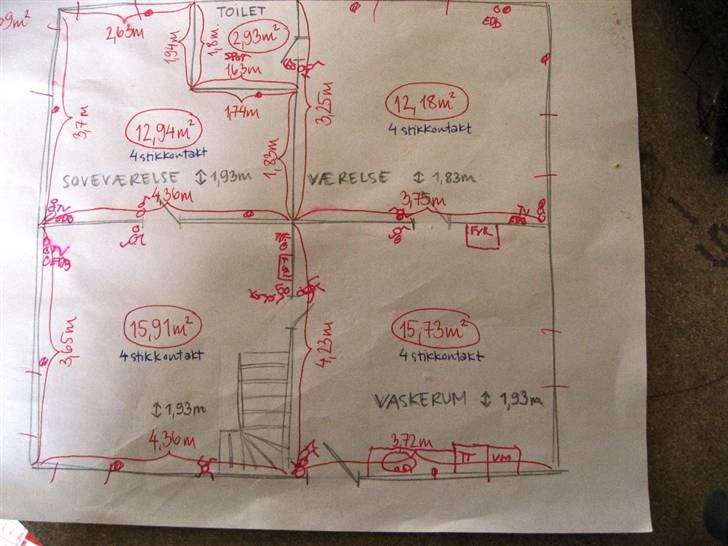 TOILET
2,63m
1,94m
1,8m
2,93m²
SPOT
1,63m
1,74m
EDB
3,7m
12,94m²
4 stikkontakt
3,25m
12,18m²
4 stikkontakt
1,83m
SOVEVÆRELSE ↕ 1,93m
VÆRELSE ↕ 1,83m
4,36m
3,75m
TV
EDB
TV
EDB
TV
EDB
FYR
15,91m²
4 stikkontakt
15,73m²
4 stikkontakt
3,65m
4,23m
↕ 1,93m
VASKERUM ↕ 1,93m
4,36m
3,72m
TT
VM